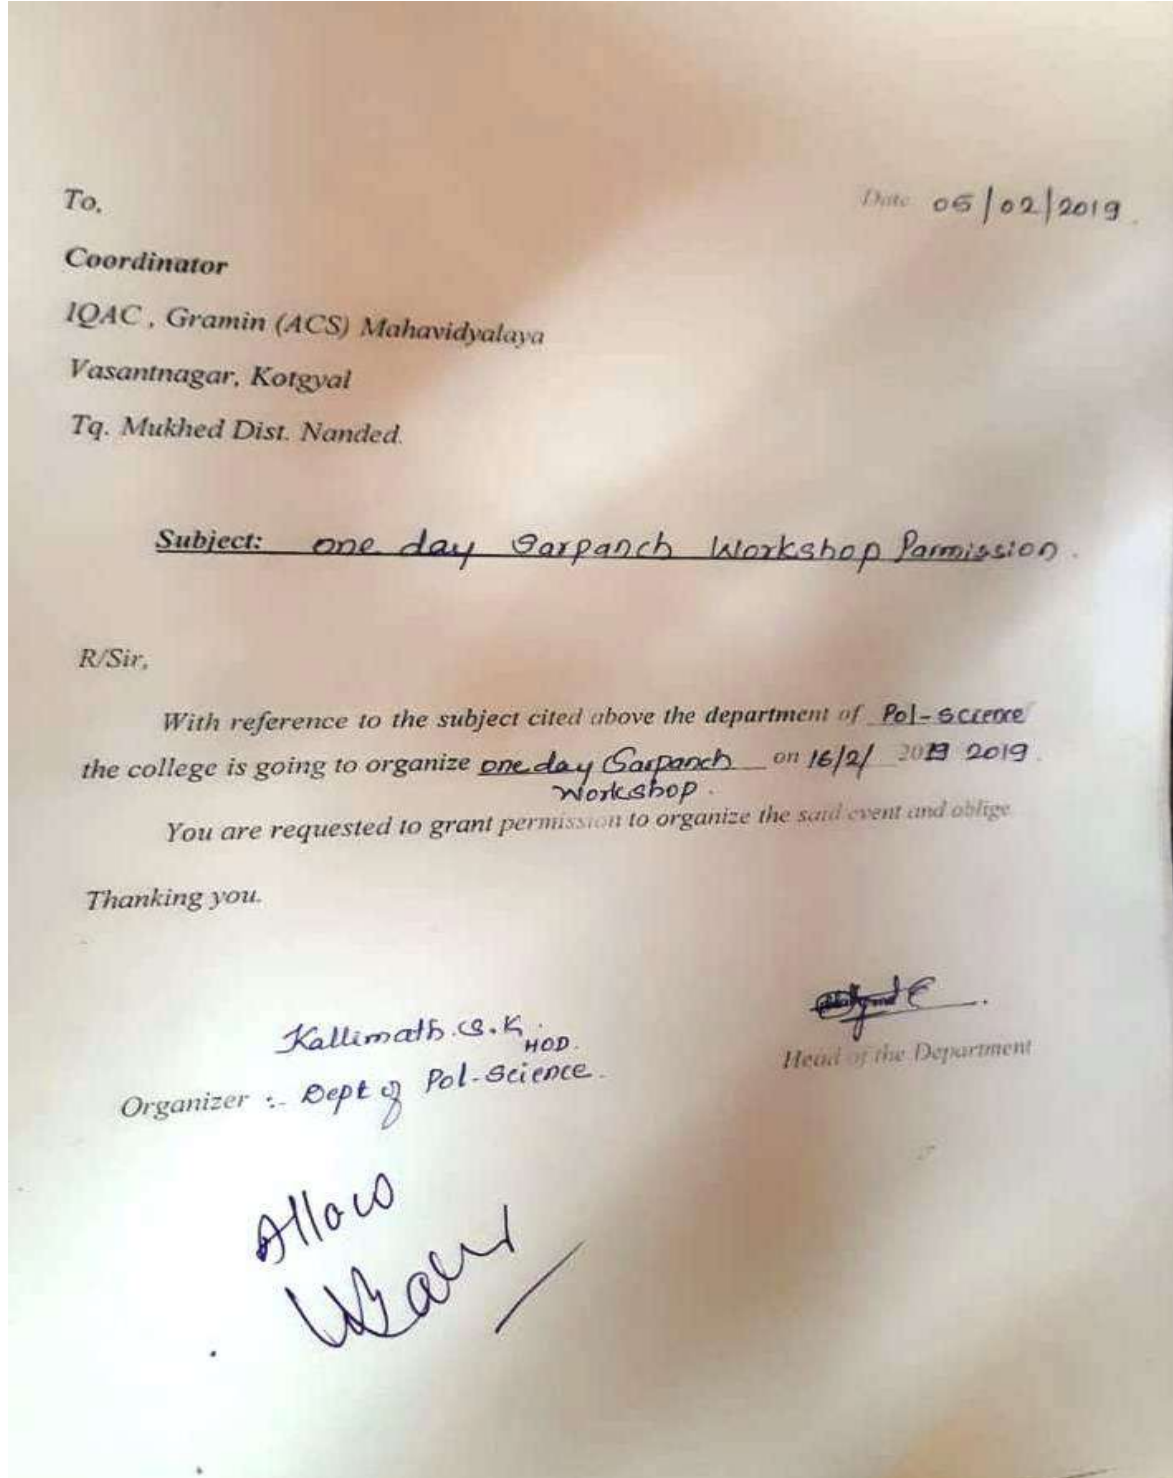 To,
Date 05/02/2019
Coordinator
IQAC , Gramin (ACS) Mahavidyalaya
Vasantnagar, Kotgyal
Tq. Mukhed Dist. Nanded.
Subject: one day Sarpanch Workshop Parmission.
R/Sir,
With reference to the subject cited above the department of Pol-science
the college is going to organize one day Sarpanch on 16/2/ 2019 2019.
Workshop.
You are requested to grant permission to organize the said event and oblige.
Thanking you.
Kallimath.S.K.
HOD.
Head of the Department
Organizer :- Dept of Pol-Science.
Allow